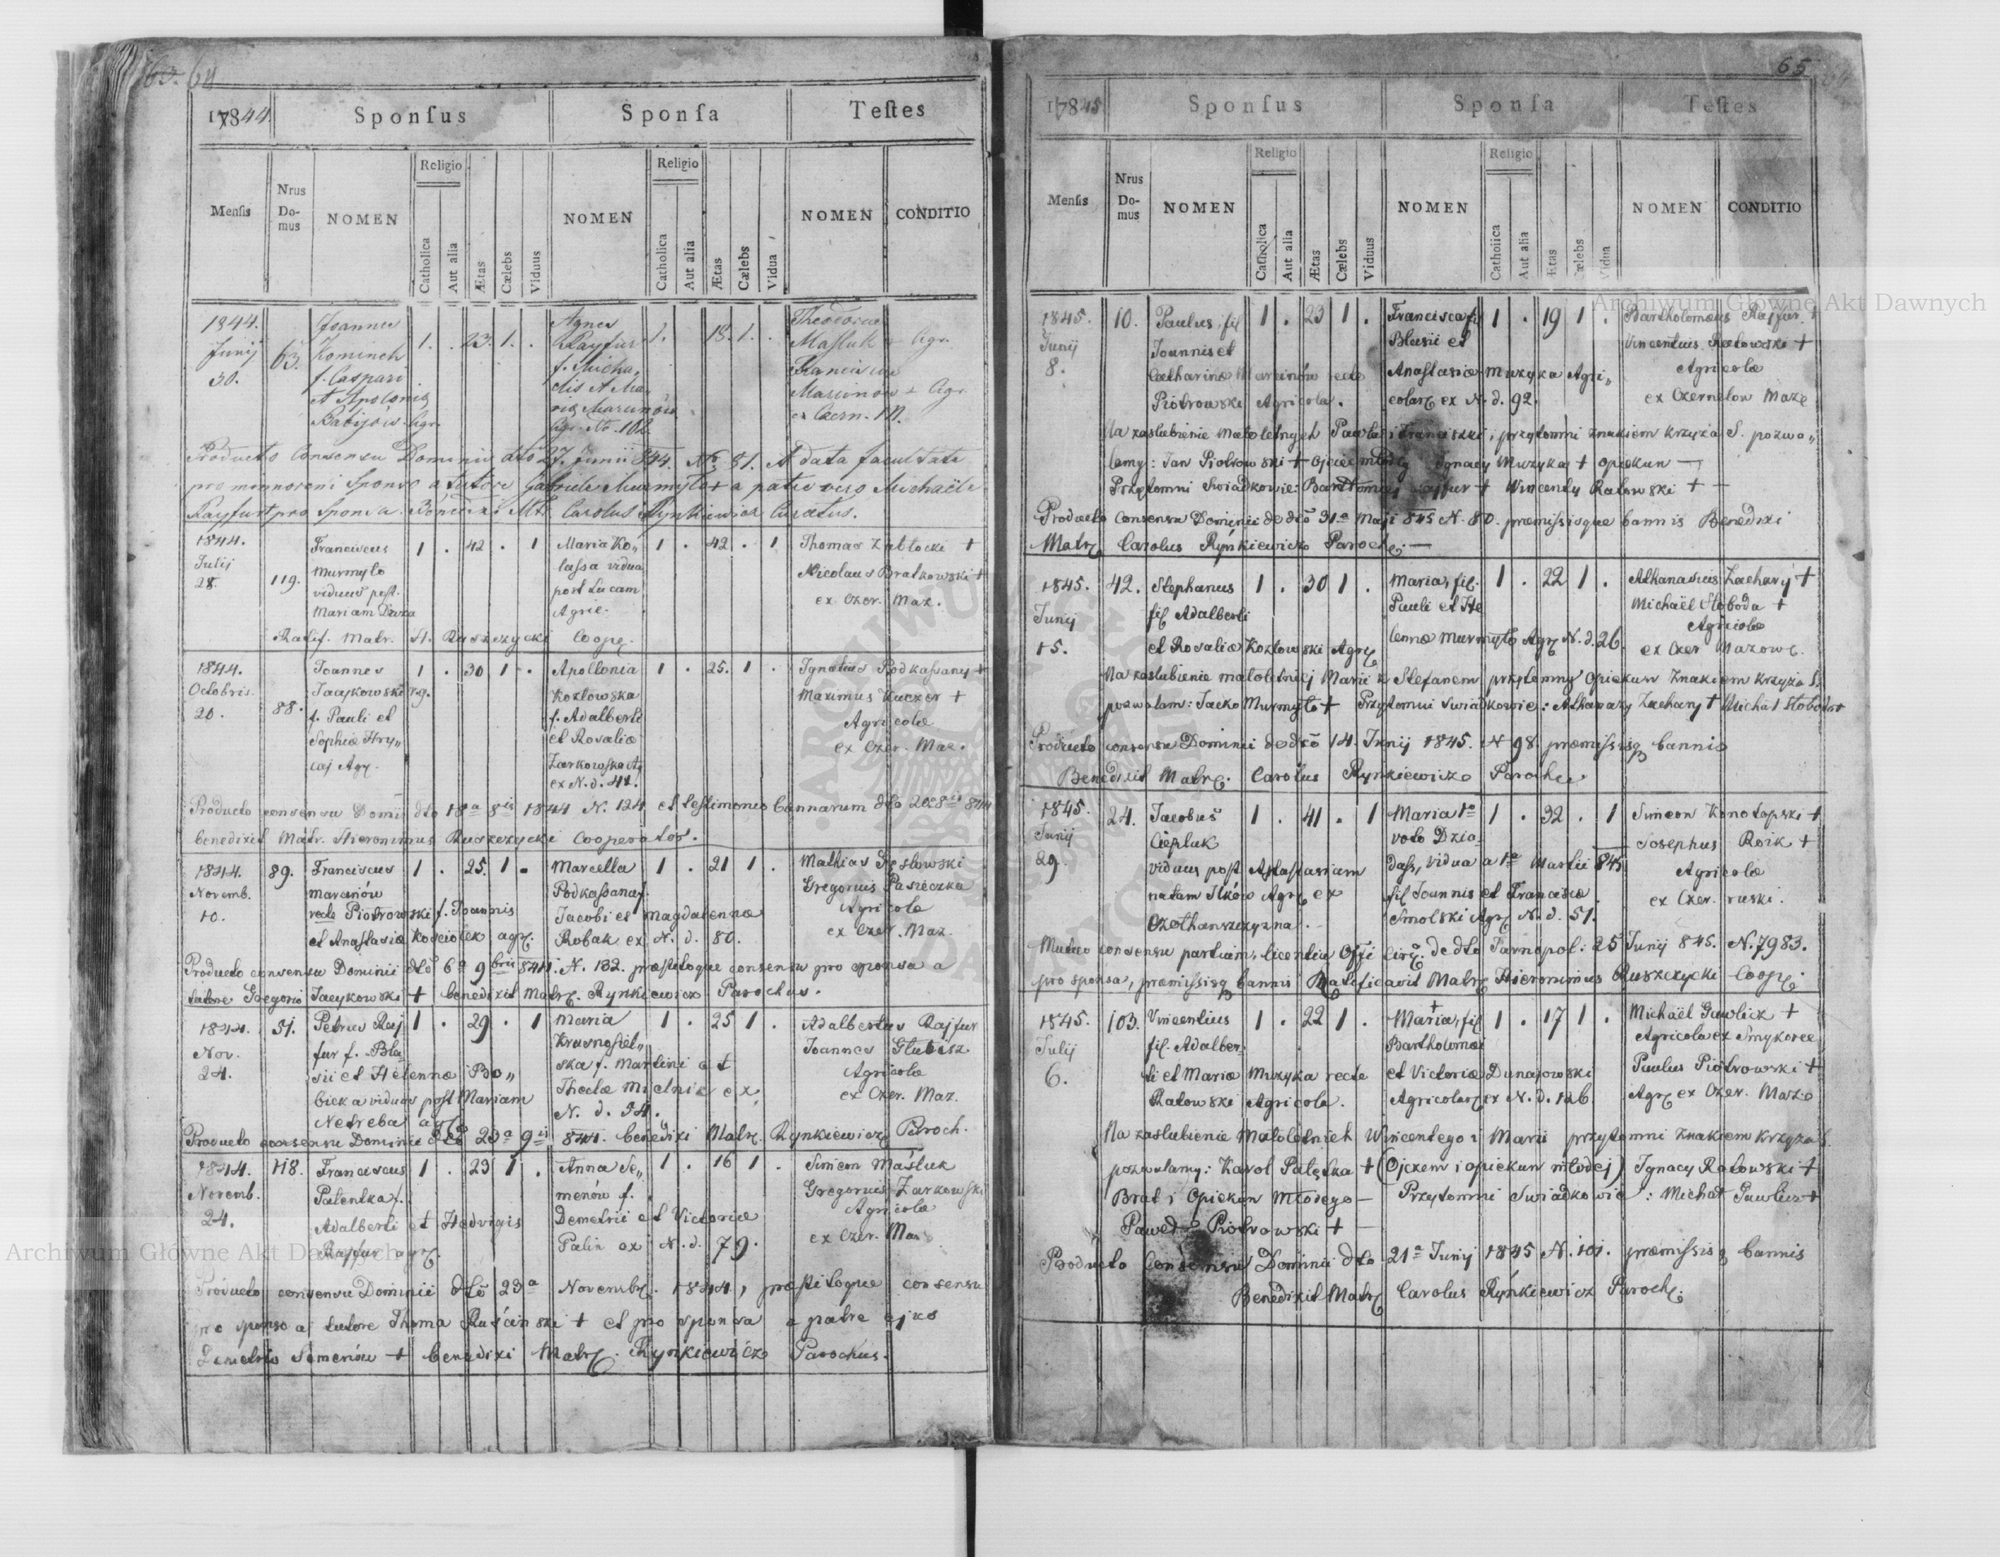 63. 64
17844 Sponſus Sponſa Teſtes
Menſis Nrus Do-mus NOMEN Religio Catholica Aut alia Ætas Cælebs Viduus NOMEN Religio Catholica Aut alia Ætas Cælebs Vidua NOMEN CONDITIO
1844. Joannes Agnes Theodorus
Junij 63. Kominek 1. . 23. 1. . Rayfur 1. . 18. 1. . Maſluk + Agr.
30. f. Caspari f. Micha-
et Apolonia lis et Ma- Marcinow + Agr.
Babijów Agr. ria Marcinów ex Czern. M.
Agr. No. 102.
Producto Consensu Dominii dto 27. Junii 844. No. 81. et data facultate
pro minorenni Sponso a tutore Gabriele Murmyło + a patre vero Michaële
Rayfur + pro Sponsa. Benedixi Mtr. Carolus Rynkiewicz Curatus.
1844. Franciscus 1 . 42 . 1 Maria Ko„ 1 . 42 . 1 Thomas Zabłocki +
Julij 119. Murmyło lassa vidua Nicolaus Bratkowski +
28. viduus post. post Lucam ex Czer. Maz.
Mariam Duza Agric.
Ratif. Matr. H. Ruszczycki Coop.
1844. Joannes 1 . 30 1 . Apollonia 1 . 25. 1 . Ignatius Podkassany +
Octobris. 88. Jacykowski Kozłowska Maximus Kuczer +
20. f. Pauli et f. Adalberti Agricolæ
Sophiæ Hry„ et Rosaliæ ex Czer. Maz.
caj Agr. Żarkowska Ag
ex N. d. 41.
Producto consensu Dominii dto 18a 8is 1844 N. 124 et testimonio bannorum dto 20 8is 844
benedixit Matr. Hieronimus Ruszczycki Cooperator.
1844. 89. Franciscus 1 . 25. 1 . Marcella 1 . 21 1 . Mathias Gęsłowski
Novemb. Marcinów Podkassana f. Gregorius Pasieczka
10. recte Piotrowski f. Joannis Jacobi et Magdalennæ Agricolæ
et Anastasiæ Kościołek agr. Robak ex N. d. 80. ex Czer. Maz.
Producto consensu Dominii dto 6a 9bris 844. N. 132. præstitoque consensu pro sponsa a
tutore Gregorio Jacykowski + benedixit Matr. Rynkiewicz Parochus.
1844. 51. Petrus Raj 1 . 29 . 1 Maria 1 . 25 1 . Adalbertus Rajfur
Nov. fur f. Bla„ Krasnosiel„ Joannes Głubisz
24. sii et Helennæ Bo„ ska f. Martini et Agricolæ
bieka viduus post Mariam Theclæ Mielnik ex ex Czer. Maz.
Netreba agr. N. d. 54.
Producto consensu Dominii dto 23a 9is 844. benedixi Matr. Rynkiewicz Proch.
1844. 118. Franciscus 1 . 23 1 . Anna Se„ 1 . 16 1 . Simeon Maśluk
Novemb. Palentka f. menów f. Gregorius Żarkowski
24. Adalberti et Hedvigis Demetrii et Victoriæ Agricolæ
Rajfur agr. Palin ex N. d. 79. ex Czer. Maz
Producto consensu Dominii dto 23a Novemb. 1844, præstitoque consensu
pro sponso a tutore Thoma Ruścinski + et pro sponsa a patre ejus
Demetrio Semenów + benedixi Matr. Rynkiewicz Parochus.
65
17845 Sponſus Sponſa Teſtes
Menſis Nrus Do-mus NOMEN Religio Catholica Aut alia Ætas Cælebs Viduus NOMEN Religio Catholica Aut alia Ætas Cælebs Vidua NOMEN CONDITIO
1845. 10. Paulus, fil 1 . 23 1 . Francisca fil 1 . 19 1 . Bartholomæus Rajfur +
Junij Joannis et Blasii et Vincentius Ratowski +
8. Catharinæ Marcinów recte Anastasiæ Muzyka Agri„ Agricolæ
Piotrowski Agricola. colar. ex N. d. 92. ex Czernelow Maze
Na zaslubienie małoletnych Pawła i Franciszki, przytomni znakiem krzyża S. pozwa„
lamy: Jan Piotrowski + Ojciec młody Ignacy Muzyka + opiekun —
Przytomni Swiadkowie: Bartłomiej Rajfur + Wincenty Ratowski + —
Producto Consensu Dominii de dto 31a Maji 845 N. 80. præmissisque bannis Benedixi
Matr. Carolus Rynkiewicz Paroch. —
1845. 42. Stephanus 1 . 30 1 . Maria, fil. 1 . 22 1 . Athanasius Zachary +
Junij fil Adalberti Pauli et He Michaël Słoboda +
15. et Rosaliæ Kozłowski Agr. lennæ Murmyło Agr. N. d. 26. Agricolæ
ex Czer Mazow.
Na zaslubienie małoletniej Marii z Stefanem przytomny opiekun znakiem krzyża S.
pozwalam: Jacko Murmyło + Przytomni swiadkowie: Athanazy Zachary + Michał Słoboda +
Producto consensu Dominii de dto 14. Junij 1845. N 98. præmissisq bannis
Benedixit Matr. Carolus Rynkiewicz Paroch
1845. 24. Jacobus 1 . 41 . 1 Maria 1o 1 . 32 . 1 Simeon Konotopski +
Junij Ciepluk voto Dzio„ Josephus Roik +
29. viduus post Anastasiam dass, vidua a 1a Martii 845 Agricolæ
natam Ilków Agr. ex fil Joannis et Franciscæ ex Czer. ruski.
Czołhańszczyzna. Smolski Agr. N. d. 51.
Mutuo consensu partium, licentia Offi Circ. de dto Tarnopol: 25 Junij 845. N. 7983.
pro sponsa, præmissisq bannis Ratificavit Matr. Hieronimus Ruszczycki Coop.
1845. 103. Vincentius 1 . 22 1 . Maria, fil 1 . 17 1 . Michaël Gawlick +
Julij fil. Adalber- Bartholomæi Agricola ex Smykowce
6. ti et Mariæ Muzyka recte et Victoriæ Dunajowski Paulus Piotrowski +
Ratowski Agricola. Agricolar. ex N. d. 126. Agr. ex Czer. Mazo
Na zaslubienie Małoletnich Wincentego i Marii przytomni znakiem krzyża S.
pozwalamy: Karol Palętka + (Ojczem i opiekun młodej) Ignacy Ratowski +
Brat i Opiekun Młodego — Przytomni swiadkowie: Michał Gawlick +
Paweł Piotrowski +
Producto Consensu Dominii dto 21a Junij 1845 N. 101. præmissisq bannis
Benedixit Matr. Carolus Rynkiewicz Paroch.
Archiwum Główne Akt Dawnych
Archiwum Główne Akt Dawnych